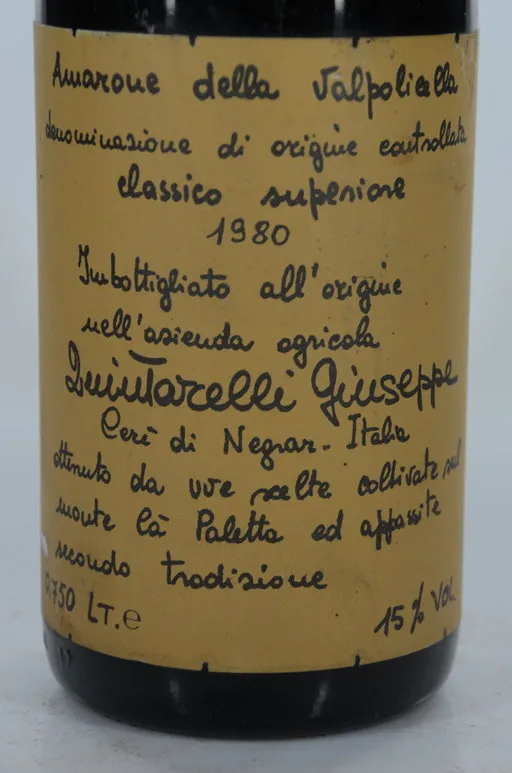 Amarone della Valpolicella
denominazione di origine controllata
classico superiore
1980
Imbottigliato all'origine
nell'azienda agricola
Quintarelli Giuseppe
Cerè di Negrar - Italia
ottenuto da uve scelte coltivate sul
monte Cà Paletta ed appassite
secondo tradizione
0,750 LT. e
15% VOL.